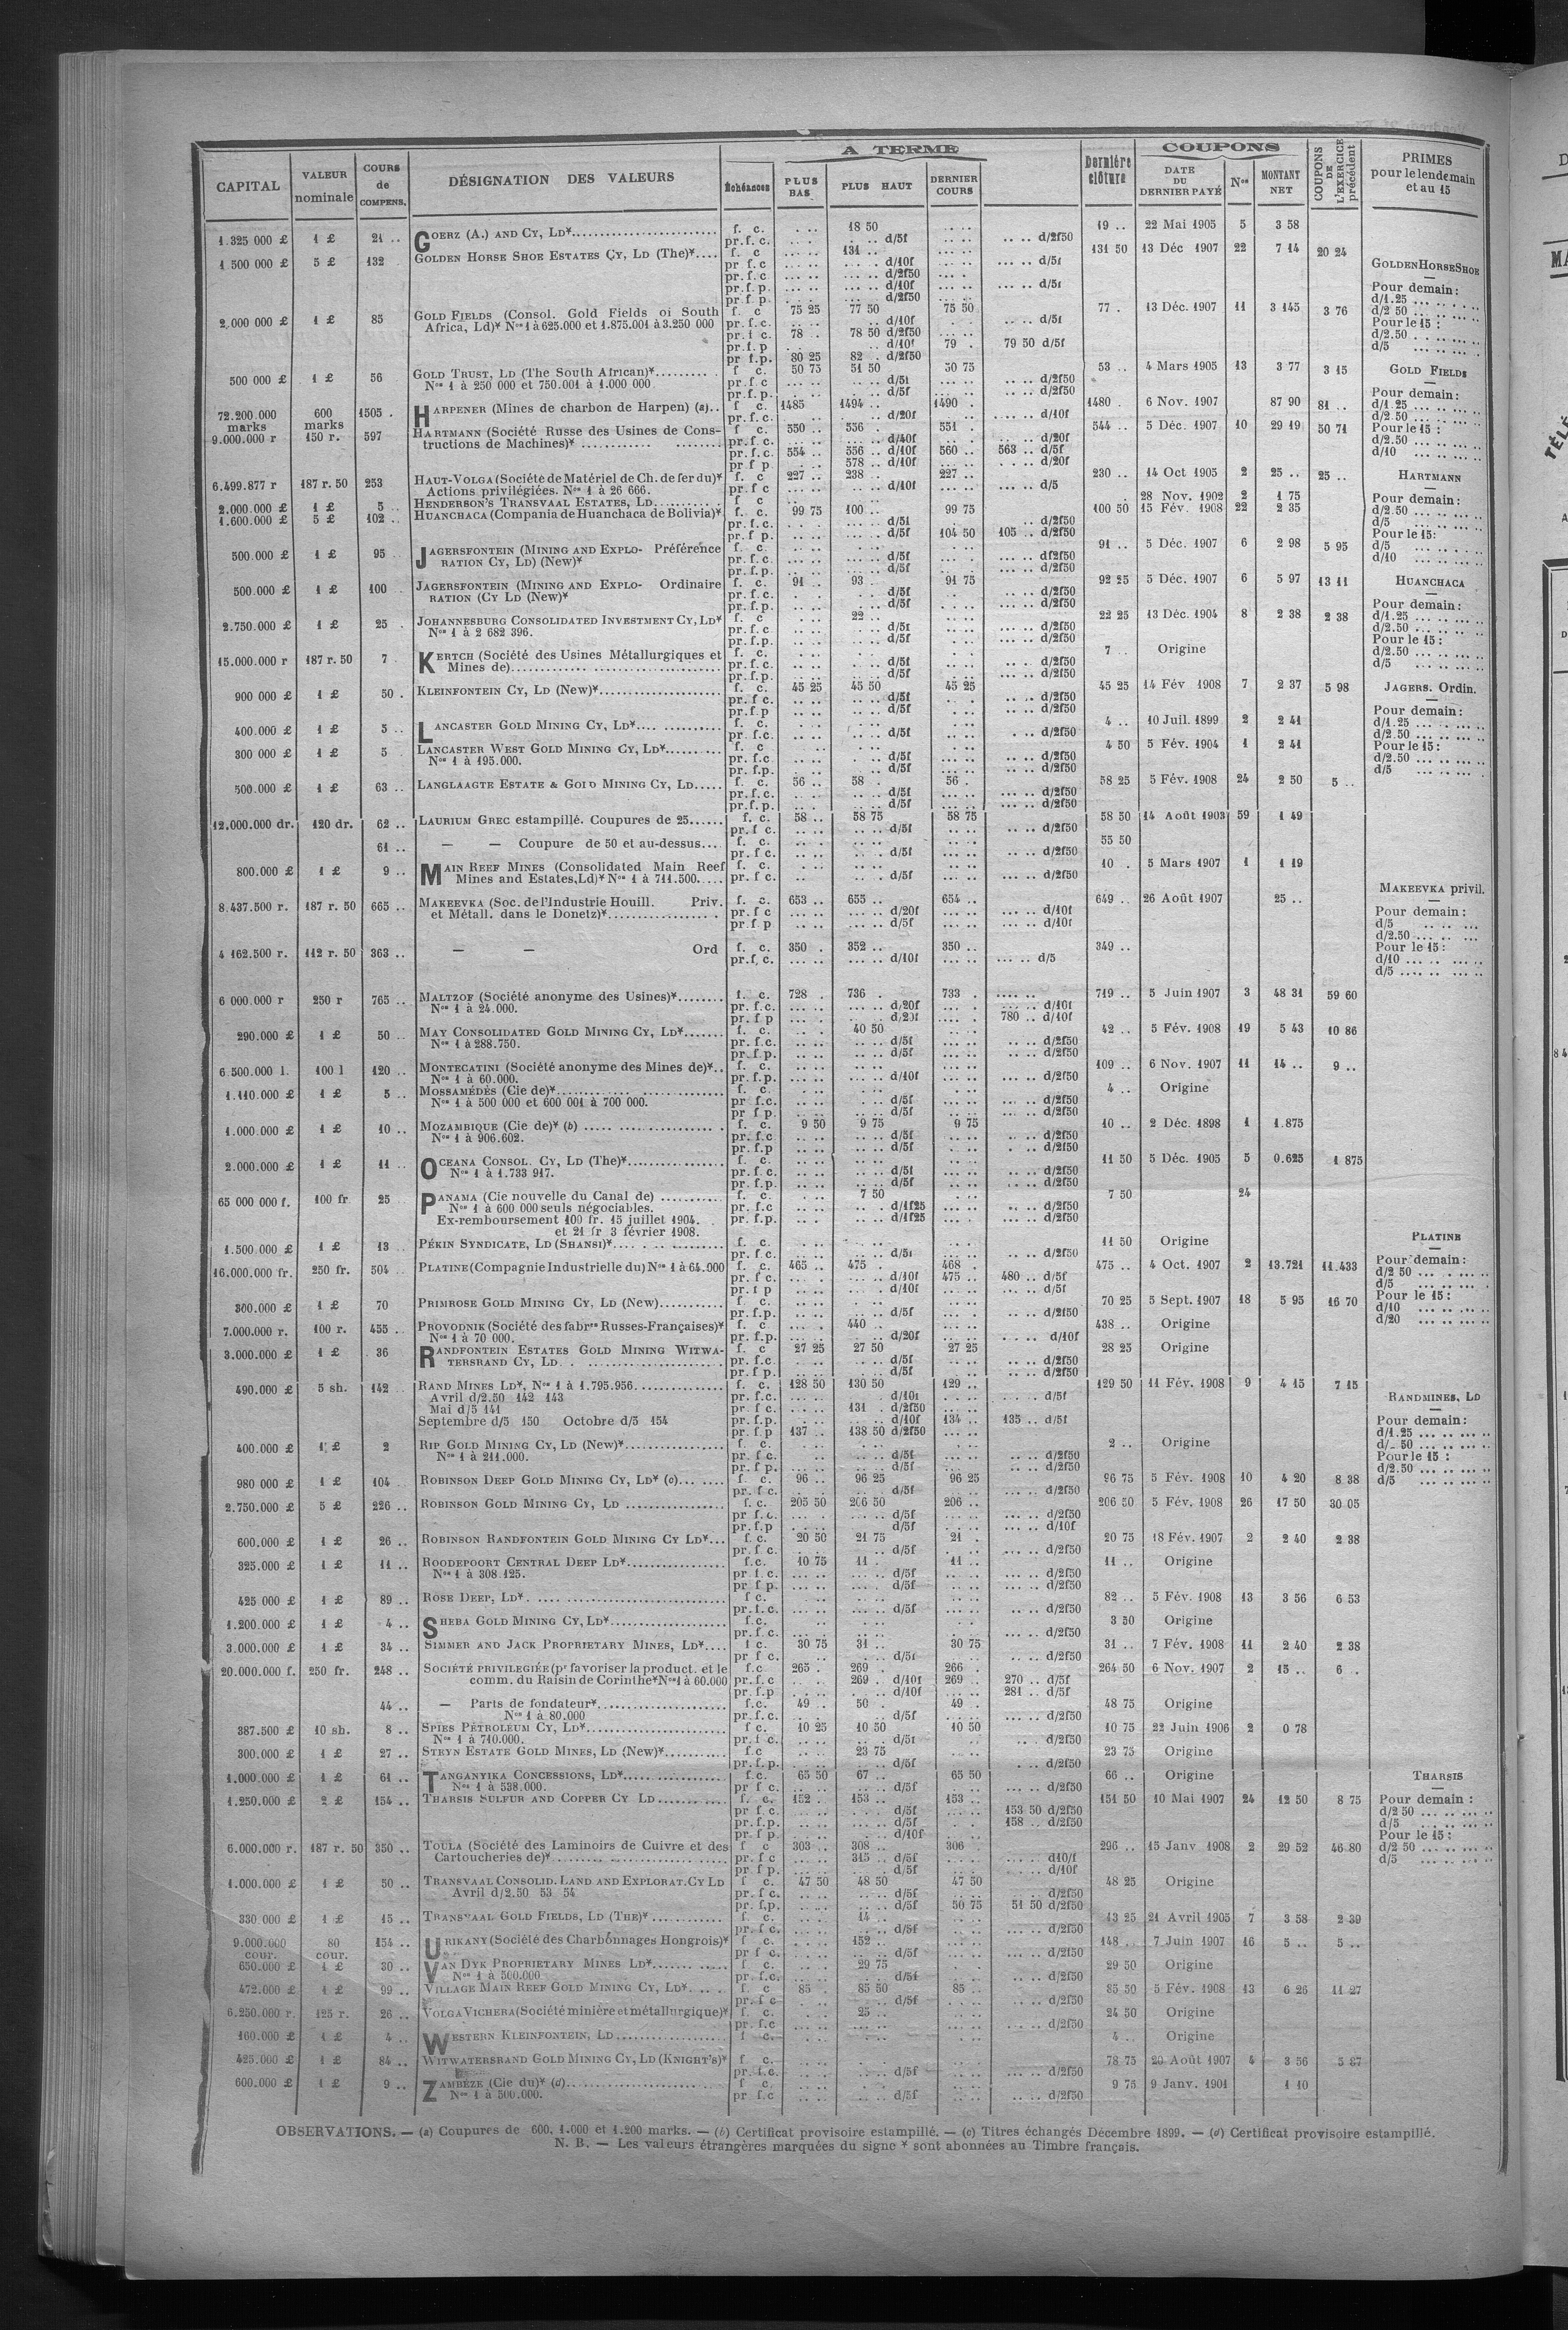 A TERME
COUPONS
CAPITAL
VALEUR nominale
COURS de COMPENS.
DÉSIGNATION DES VALEURS
Échéances
PLUS BAS
PLUS HAUT
DERNIER COURS
Dernière clôture
DATE DU DERNIER PAYÉ
Nos
MONTANT NET
COUPONS DE L'EXERCICE précédent
PRIMES pour le lendemain et au 15
1.325 000 £ 1 £ 21 .. GOERZ (A.) AND CY, LD* f. c. 18 50 19 .. 22 Mai 1905 5 3 58
pr. f. c. d/5f d/2f50
1 500 000 £ 5 £ 132 GOLDEN HORSE SHOE ESTATES CY, LD (The)* f. c 131 .. 131 50 13 Déc 1907 22 7 14 20 24
pr f. c d/10f d/5f
pr. f. c d/2f50
pr. f. p. d/10f d/5f
pr. f p. d/2f50
2.000 000 £ 1 £ 85 GOLD FIELDS (Consol. Gold Fields of South f. c 75 25 77 50 75 50 77 . 13 Déc. 1907 11 3 145 3 76
Africa, Ld)* Nos 1 à 625.000 et 1.875.001 à 3.250 000 pr. f. c. d/10f d/5f
pr. f c. 78 . 78 50 d/2f50
pr. f. p d/10f 79 . 79 50 d/5f
pr f.p. 80 25 82 . d/2f50
500 000 £ 1 £ 56 GOLD TRUST, LD (The South African)* f. c. 50 75 51 50 50 75 53 .. 4 Mars 1905 13 3 77 3 15
Nos 1 à 250 000 et 750.001 à 1.000 000 pr. f. c d/5f d/2f50
pr. f. p. d/5f d/2f50
72.200.000 marks 600 marks 1505 . HARPENER (Mines de charbon de Harpen) (a) f c. 1485 1494 .. 1490 . 1480 .. 6 Nov. 1907 87 90 81 ..
pr. f. c. d/20f d/10f
9.000.000 r 150 r. 597 HARTMANN (Société Russe des Usines de Cons- f. c. 550 .. 556 . 551 . 544 .. 5 Déc. 1907 10 29 19 50 71
tructions de Machines)* pr. f. c. d/40f d/20f
pr. f. c. 554 .. 556 .. d/10f 560 .. 563 .. d/5f
pr f p. 578 .. d/10f d/20f
6.499.877 r 187 r. 50 253 HAUT-VOLGA (Société de Matériel de Ch. de fer du)* f. c 227 .. 238 .. 227 .. 230 .. 14 Oct 1905 2 25 .. 25 ..
Actions privilégiées. Nos 1 à 26 666. pr. f c d/10f d/5
2.000.000 £ 1 £ 5 .. HENDERSON'S TRANSVAAL ESTATES, LD f c 28 Nov. 1902 2 1 75
1.600.000 £ 5 £ 102 .. HUANCHACA (Compania de Huanchaca de Bolivia)* f. c. 99 75 100 .. 99 75 100 50 15 Fév. 1908 22 2 35
pr. f. c. d/5f d/2f50
pr. f p. d/5f 104 50 105 .. d/2f50
500.000 £ 1 £ 95 JAGERSFONTEIN (MINING AND EXPLO- Préférence f. c. 91 .. 5 Déc. 1907 6 2 98 5 95
RATION CY, LD) (New)* pr. f. c. d/5f d/2f50
pr. f. p. d/5f d/2f50
500.000 £ 1 £ 100 JAGERSFONTEIN (MINING AND EXPLO- Ordinaire f. c. 91 .. 93 91 75 92 25 5 Déc. 1907 6 5 97 13 11
RATION (CY LD (New)* pr. f. c. d/5f d/2f50
pr. f. p. d/5f d/2f50
2.750.000 £ 1 £ 25 . JOHANNESBURG CONSOLIDATED INVESTMENT CY, LD* f. c 22 .. 22 25 13 Déc. 1904 8 2 38 2 38
Nos 1 à 2 682 396. pr. f. c d/5f d/2f50
pr. f. p. d/5f d/2f50
15.000.000 r 187 r. 50 7 . KERTCH (Société des Usines Métallurgiques et f. c. 7 . Origine
Mines de) pr. f. c. d/5f d/2f50
pr. f. p. d/5f d/2f50
900 000 £ 1 £ 50 . KLEINFONTEIN CY, LD (New)* f. c. 45 25 45 50 45 25 45 25 14 Fév 1908 7 2 37 5 98
pr. f c. d/5f d/2f50
pr. f. p d/5f d/2f50
400.000 £ 1 £ 5 .. LANCASTER GOLD MINING CY, LD* f. c. 4 .. 10 Juil. 1899 2 2 41
pr. f. c. d/5f d/2f50
300 000 £ 1 £ 5 LANCASTER WEST GOLD MINING CY, LD* f. c 4 50 5 Fév. 1904 1 2 41
Nos 1 à 195.000. pr. f. c d/5f d/2f50
pr. f. p. d/5f d/2f50
500.000 £ 1 £ 63 .. LANGLAAGTE ESTATE & GOLD MINING CY, LD f. c. 56 .. 58 . 56 . 58 25 5 Fév. 1908 24 2 50 5 ..
pr. f. c. d/5f d/2f50
pr. f. p. d/5f d/2f50
12.000.000 dr. 120 dr. 62 .. LAURIUM GREC estampillé. Coupures de 25 f. c. 58 .. 58 75 58 75 58 50 14 Août 1903 59 1 49
pr. f c. d/5f d/2f50
61 .. — — Coupure de 50 et au-dessus f. c. 55 50
pr. f c. d/5f d/2f50
800.000 £ 1 £ 9 .. MAIN REEF MINES (Consolidated Main Reef f. c. 10 . 5 Mars 1907 1 1 19
Mines and Estates, Ld)* Nos 1 à 711.500. pr. f c. d/5f d/2f50
8.437.500 r. 187 r. 50 665 .. MAKEEVKA (Soc. de l'Industrie Houill. Priv. f. c. 653 .. 655 .. 654 .. 649 .. 26 Août 1907 25 ..
et Métall. dans le Donetz)* pr. f c d/20f d/10f
pr. f p d/5f d/10f
4 162.500 r. 112 r. 50 363 .. — — Ord f. c. 350 . 352 .. 350 .. 349 ..
pr. f. c. d/10f d/5
6 000.000 r 250 r 765 .. MALTZOF (Société anonyme des Usines)* f. c. 728 . 736 . 733 . 719 .. 5 Juin 1907 3 48 31 59 60
Nos 1 à 24.000. pr. f. c. d/20f d/10f
pr. f p d/20f 780 .. d/10f
290.000 £ 1 £ 50 .. MAY CONSOLIDATED GOLD MINING CY, LD* f. c. 40 50 42 .. 5 Fév. 1908 19 5 43 10 86
Nos 1 à 288.750. pr. f. c. d/5f d/2f50
pr. f. p. d/5f d/2f50
6 500.000 l. 100 l 120 .. MONTECATINI (Société anonyme des Mines de)* f. c. 109 .. 6 Nov. 1907 11 14 .. 9 ..
Nos 1 à 60.000. pr. f. p. d/10f d/2f50
1.110.000 £ 1 £ 5 .. MOSSAMÉDÈS (Cie de)* f. c. 4 .. Origine
Nos 1 à 500 000 et 600 001 à 700 000. pr f. c. d/5f d/2f50
pr f p. d/5f d/2f50
1.000.000 £ 1 £ 10 .. MOZAMBIQUE (Cie de)* (b) f. c. 9 50 9 75 9 75 10 .. 2 Déc. 1898 1 1.875
Nos 1 à 906.602. pr. f. c d/5f d/2f50
pr. f. p d/5f d/2f50
2.000.000 £ 1 £ 11 .. OCEANA CONSOL. CY, LD (The)* f. c. 11 50 5 Déc. 1905 5 0.625 1 875
Nos 1 à 1.733 917. pr. f. c. d/5f d/2f50
pr. f. p. d/5f d/2f50
65 000 000 f. 100 fr 25 PANAMA (Cie nouvelle du Canal de) f. c. 7 50 7 50 24
Nos 1 à 600.000 seuls négociables. pr. f. c d/1f25 d/2f50
Ex-remboursement 100 fr. 15 juillet 1904. pr. f. p. d/1f25 d/2f50
et 21 fr 3 février 1908.
1.500.000 £ 1 £ 13 PÉKIN SYNDICATE, LD (SHANSI)* f. c. 11 50 Origine
pr. f. c. d/5f d/2f50
16.000.000 fr. 250 fr. 504 .. PLATINE (Compagnie Industrielle du) Nos 1 à 64.000 f. c. 465 .. 475 . 468 . 475 .. 4 Oct. 1907 2 13.721 11.433
pr. f c. d/10f 475 .. 480 .. d/5f
pr. f p d/10f d/5f
300.000 £ 1 £ 70 PRIMROSE GOLD MINING CY, LD (New) f c. 70 25 5 Sept. 1907 18 5 95 16 70
pr. f. p. d/5f d/2f50
7.000.000 r. 100 r. 455 .. PROVODNIK (Société des fabres Russes-Françaises)* f. c 440 .. 438 .. Origine
Nos 1 à 70 000. pr. f. p. d/20f d/10f
3.000.000 £ 1 £ 36 RANDFONTEIN ESTATES GOLD MINING WITWA- f. c 27 25 27 50 27 25 28 25 Origine
TERSRAND CY, LD. pr. f. c. d/5f d/2f50
pr. f p. d/5f d/2f50
490.000 £ 5 sh. 142 RAND MINES LD*, Nos 1 à 1.795.956 f. c. 128 50 130 50 129 .. 129 50 11 Fév. 1908 9 4 15 7 15
Avril d/2.50 142 143 pr. f. c. d/10f d/5f
Mai d/5 141 pr. f c. 131 . d/2f50
Septembre d/5 150 Octobre d/5 154 pr. f. p. d/10f 134 .. 135 .. d/5f
pr. f. p 137 .. 138 50 d/2f50
400.000 £ 1 £ 2 RIP GOLD MINING CY, LD (New)* f. c. 2 .. Origine
Nos 1 à 211.000. pr. f c. d/5f d/2f50
pr. f p. d/5f d/2f50
980 000 £ 1 £ 104 ROBINSON DEEP GOLD MINING CY, LD* (c) f. c. 96 .. 96 25 96 25 96 75 5 Fév. 1908 10 4 20 8 38
pr. f c. d/5f d/2f50
2.750.000 £ 5 £ 226 .. ROBINSON GOLD MINING CY, LD f. c. 205 50 206 50 206 .. 206 50 5 Fév. 1908 26 17 50 30 05
pr. f. c. d/5f d/2f50
pr. f. p d/5f d/10f
600.000 £ 1 £ 26 .. ROBINSON RANDFONTEIN GOLD MINING CY LD* f. c. 20 50 21 75 21 . 20 75 18 Fév. 1907 2 2 40 2 38
pr. f c. d/5f d/2f50
325.000 £ 1 £ 11 .. ROODEPOORT CENTRAL DEEP LD* f. c. 10 75 11 . 11 .. 11 .. Origine
Nos 1 à 308.125. pr f. c. d/5f d/2f50
pr f p. d/5f d/2f50
425 000 £ 1 £ 89 .. ROSE DEEP, LD* f c. 82 .. 5 Fév. 1908 13 3 56 6 53
pr. f. c. d/5f d/2f50
1.200.000 £ 1 £ 4 .. SHEBA GOLD MINING CY, LD* f. c. 3 50 Origine
pr. f. c. d/2f50
3.000.000 £ 1 £ 34 .. SIMMER AND JACK PROPRIETARY MINES, LD* f c. 30 75 31 .. 30 75 31 .. 7 Fév. 1908 11 2 40 2 38
pr f c. d/5f d/2f50
20.000.000 f. 250 fr. 248 .. SOCIÉTÉ PRIVILEGIÉE (pr favoriser la product. et le f. c 265 . 269 . 266 . 264 50 6 Nov. 1907 2 15 .. 6 .
comm. du Raisin de Corinthe* Nos 1 à 60.000 pr. f. c 269 . d/10f 269 .. 270 .. d/5f
pr. f. p d/10f 281 .. d/5f
44 .. — Parts de fondateur* f. c. 49 .. 50 . 49 . 48 75 Origine
Nos 1 à 80.000 pr. f. c. d/5f d/2f50
387.500 £ 10 sh. 8 .. SPIES PÉTROLEUM CY, LD* f c. 10 25 10 50 10 50 10 75 22 Juin 1906 2 0 78
Nos 1 à 710.000. pr. f c. d/5f d/2f50
300.000 £ 1 £ 27 .. STEYN ESTATE GOLD MINES, LD (New)* f. c 23 75 23 75 Origine
pr. f. p. d/5f d/2f50
1.000.000 £ 1 £ 61 .. TANGANYIKA CONCESSIONS, LD* f. c. 65 50 67 .. 65 50 66 .. Origine
Nos 1 à 538.000. pr f c. d/5f d/2f50
1.250.000 £ 2 £ 154 .. THARSIS SULFUR AND COPPER CY LD f. c. 152 . 153 .. 153 .. 151 50 10 Mai 1907 24 12 50 8 75
pr f c. d/5f 153 50 d/2f50
pr. f. p. d/5f 158 .. d/2f50
pr f p. d/10f
6.000.000 r. 187 r. 50 350 .. TOULA (Société des Laminoirs de Cuivre et des f c 303 .. 308 .. 306 . 296 .. 15 Janv 1908 2 29 52 46 80
Cartoucheries de)* pr. f c 315 .. d/5f d10/f
pr f p. d/5f d/10f
1.000.000 £ 1 £ 50 .. TRANSVAAL CONSOLID. LAND AND EXPLORAT. CY LD f c. 47 50 48 50 47 50 48 25 Origine
Avril d/2.50 53 54 pr. f c. d/5f d/2f50
pr. f. p. d/5f 50 75 51 50 d/2f50
330 000 £ 1 £ 15 .. TRANSVAAL GOLD FIELDS, LD (THE)* f. c. 14 .. 13 25 21 Avril 1905 7 3 58 2 39
pr. f c. d/5f d/2f50
9.000.000 cour. 80 cour. 154 .. URIKANY (Société des Charbonnages Hongrois)* f c. 152 .. 148 .. 7 Juin 1907 16 5 .. 5 ..
pr f c. d/5f d/2f50
650.000 £ 1 £ 30 .. VAN DYK PROPRIETARY MINES LD* f c. 29 75 29 50 Origine
Nos 1 à 500.000 pr. f. c. d/5f d/2f50
472.000 £ 1 £ 99 .. VILLAGE MAIN REEF GOLD MINING CY, LD* f. c 85 . 85 50 85 .. 85 50 5 Fév. 1908 13 6 26 11 27
pr. f c d/5f d/2f50
6.250.000 r. 125 r. 26 .. VOLGA VICHERA (Société minière et métallurgique)* f. c. 25 .. 24 50 Origine
pr. f. c d/2f50
160.000 £ 1 £ 4 .. WESTERN KLEINFONTEIN, LD f c. 4 .. Origine
425.000 £ 1 £ 84 .. WITWATERSRAND GOLD MINING CY, LD (KNIGHT'S)* f c. 78 75 20 Août 1907 4 3 56 5 87
pr. f. c. d/5f d/2f50
600.000 £ 1 £ 9 .. ZAMBÈZE (Cie du)* (d) f c. 9 75 9 Janv. 1901 1 10
Nos 1 à 500.000. pr f. c d/5f d/2f50
GOLDEN HORSE SHOE
Pour demain :
d/1.25
d/2 50
Pour le 15 :
d/2.50
d/5
GOLD FIELDS
Pour demain :
d/1.25
d/2.50
Pour le 15 :
d/2.50
d/10
HARTMANN
Pour demain :
d/2.50
d/5
Pour le 15 :
d/5
d/10
HUANCHACA
Pour demain :
d/1.25
d/2.50
Pour le 15 :
d/2.50
d/5
JAGERS. Ordin.
Pour demain :
d/1.25
d/2.50
Pour le 15 :
d/2.50
d/5
MAKEEVKA privil.
Pour demain :
d/5
d/2.50
Pour le 15 :
d/10
d/5
PLATINE
Pour demain :
d/2 50
d/5
Pour le 15 :
d/10
d/20
RANDMINES, LD
Pour demain :
d/1.25
d/ 50
Pour le 15 :
d/2.50
d/5
THARSIS
Pour demain :
d/2 50
d/5
Pour le 15 :
d/2 50
d/5
OBSERVATIONS. — (a) Coupures de 600, 1.000 et 1.200 marks. — (b) Certificat provisoire estampillé. — (c) Titres échangés Décembre 1899. — (d) Certificat provisoire estampillé.
N. B. — Les valeurs étrangères marquées du signe * sont abonnées au Timbre français.